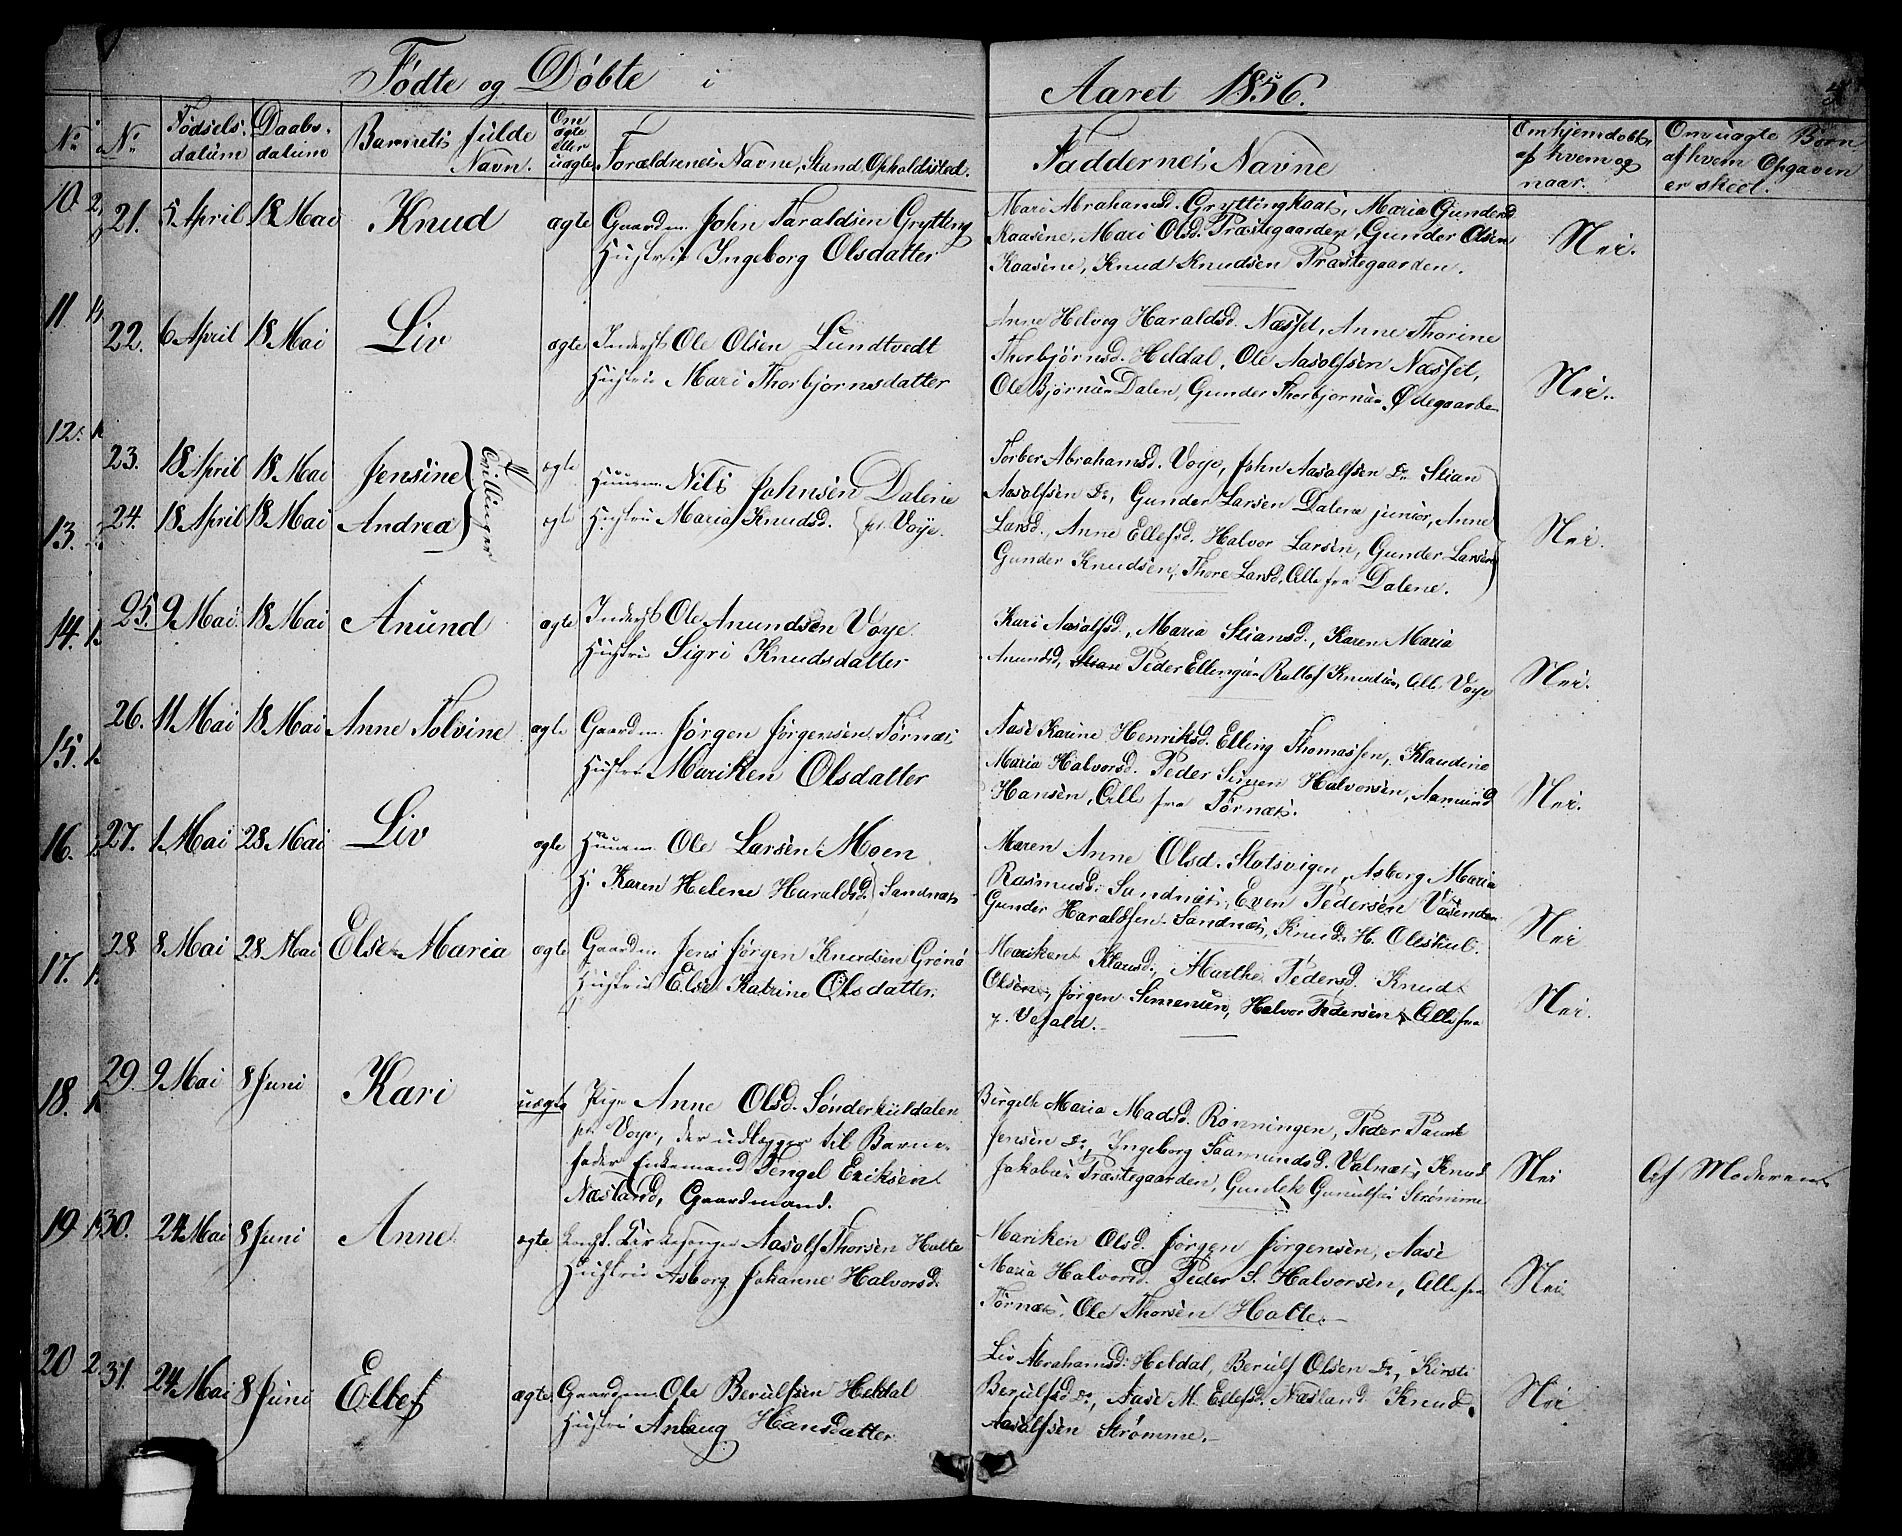 Fødte og Døbte i Aaret 1856.
No
No Fødsels-datum Daabs-datum Barnets fulde Navn. Om ægte eller uægte Forældrenes Navne, Stand, Opholdssted. Faddernes Navne Om hjemdøbt, af hvem og naar. Om uægte Børn af hvem Opgaven er skeet.
10.
21. 5 April 18 Mai Knud ægte Gaardm. John Taraldsen Grytting
Hustrue Ingeborg Olsdatter
Mari Abrahamsd. Gryttingkaas, Maria Gundersd.
Kaasene, Mari Olsd. Præstegaarden, Gunder Olsen
Kaasene, Knud Knudsen Præstegaarden.
Nei.
11
22. 6 April 18 Mai Liv ægte Inderst Ole Olsen Lundtvedt
Hustrue Mari Thorbjørnsdatter
Anne Helveg Haraldsd. Næsset, Anne Thorine
Thorbjørnsd. Heldal, Ole Aasolfsen Næsset,
Ole Bjørnsen Dalen, Gunder Thorbjørnsen Ødegaarde
Nei.
12.
23. 18 April 18 Mai Jensine Tvillinger ægte Huusm. Nils Johnsen Dalene
24. 18 April 18 Mai Andrea ægte Hustrue Maria Knudsd. pt. Voje.
Torber Abrahamsd. Voje, John Aasolfsen Do Stian
Aasolfsen Do, Gunder Larsen Dalene junior, Anne
Larsd., Anne Ellefsd. Halvor Larsen, Gunder Larsen
Gunder Knudsen, Thore Larsd. Alle fra Dalene.
Nei.
13.
14.
25. 9 Mai 18 Mai Anund ægte Inderst Ole Anundsen Voje.
Hustrue Sigri Knudsdatter
Kari Aasolfsd., Maria Stiansd., Karen Maria
Anundsd, Peder Ellingsen Rollof Knudsen, Alle Voje
Nei.
15.
26. 11 Mai 18 Mai Anne Tolvine ægte Gaardm. Jørgen Jørgensen Tørnæs
Hustrue Mariken Olsdatter
Aase Karine Henriksd. Elling Thomassen, Klaudine
Maria Halvorsd. Peder Simen Halvorsen, Aamund
Hansen, Alle fra Tørnæs.
Nei.
16.
27. 1 Mai 28 Mai Liv ægte Huusm. Ole Larsen Moen
H. Karen Helene Haraldsd. Sandnæs
Maren Anne Olsd. Slotsvigen, Asborg Maria
Rasmusd. Sandnæs, Even Pedersen Vasenden
Gunder Haraldsen Sandnæs, Knud H. Oleskul.
Nei
17.
28 8 Mai 28 Mai Else Maria ægte Gaardm. Jens Jørgen Knudsen Grønø
Hustrue Else Katrine Olsdatter.
Mariken Klausd., Marthe Pedersd. Knud
Olsen, Jørgen Simensen, Halvor Pedersen Alle fra
Nei.
18.
29. 9 Mai 8 Juni Kari uægte Pige Anne Olsd. Sønderkuldalen
pt. Voje, der udlægger til Barne-
fader Enkemand Tengel Eriksen
Næsland, Gaardmand.
Birgithe Maria Madsd. Rønningen, Peder
Jensen Do, Ingeborg Saamundsd. Valnæs, Knud
Jakobsen Præstegaarden, Gundek Gunulfsen Strømme
Nei Af Moderen
19
30. 24 Mai 8 Juni Anne ægte Konst. Kirkesanger Aasolf Thorsen Holte
Hustrue Asborg Johanne Halvorsd.
Mariken Olsd. Jørgen Jørgensen, Aase
Maria Halvorsd. Peder S. Halvorsen, Alle fra
Tørnæs, Ole Thorsen Holte.
Nei.
20
31. 24 Mai 8 Juni Ellef ægte. Gaardm. Ole Berulfsen Heldal
Hustrue Anlaug Hansdatter
Liv Abrahamsd. Heldal, Berulf Olsen Do, Kirsti
Berulfsd. Do, Aase M. Ellefsd. Næsland Knud
Aasolfsen Strømme.
Nei